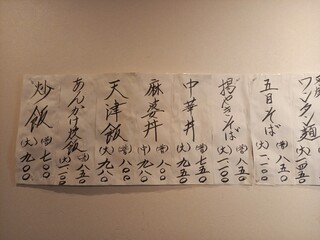 ワンタン麺
五目そば
(普)八五〇
(大)一一〇〇
揚やきそば
(普)八五〇
(大)一一〇〇
中華丼
(普)七五〇
(大)九五〇
麻婆丼
(普)八〇〇
九八〇
天津飯
(普)八〇〇
(大)九八〇
あんかけ炒飯
(普)八五〇
(大)一一〇〇
炒飯
(普)七〇〇
(大)九〇〇